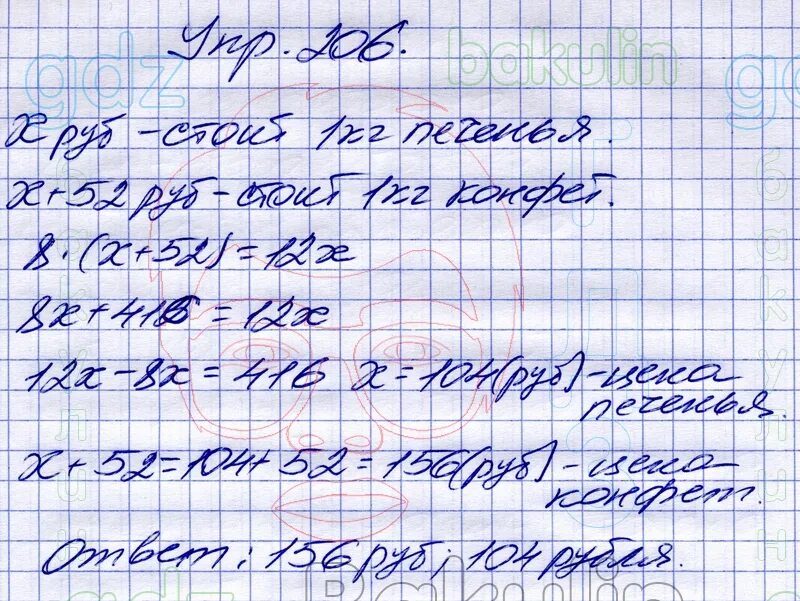 Упр. 206.
gdz bakulin gdz
x руб - стоит 1 кг печенья.
x + 52 руб - стоит 1 кг конфет.
8 · (x + 52) = 12x
8x + 416 = 12x
12x - 8x = 416 x = 104 (руб) - цена
печенья.
x + 52 = 104 + 52 = 156 (руб) - цена
конфет.
Ответ: 156 руб; 104 рубля.
Bakulin